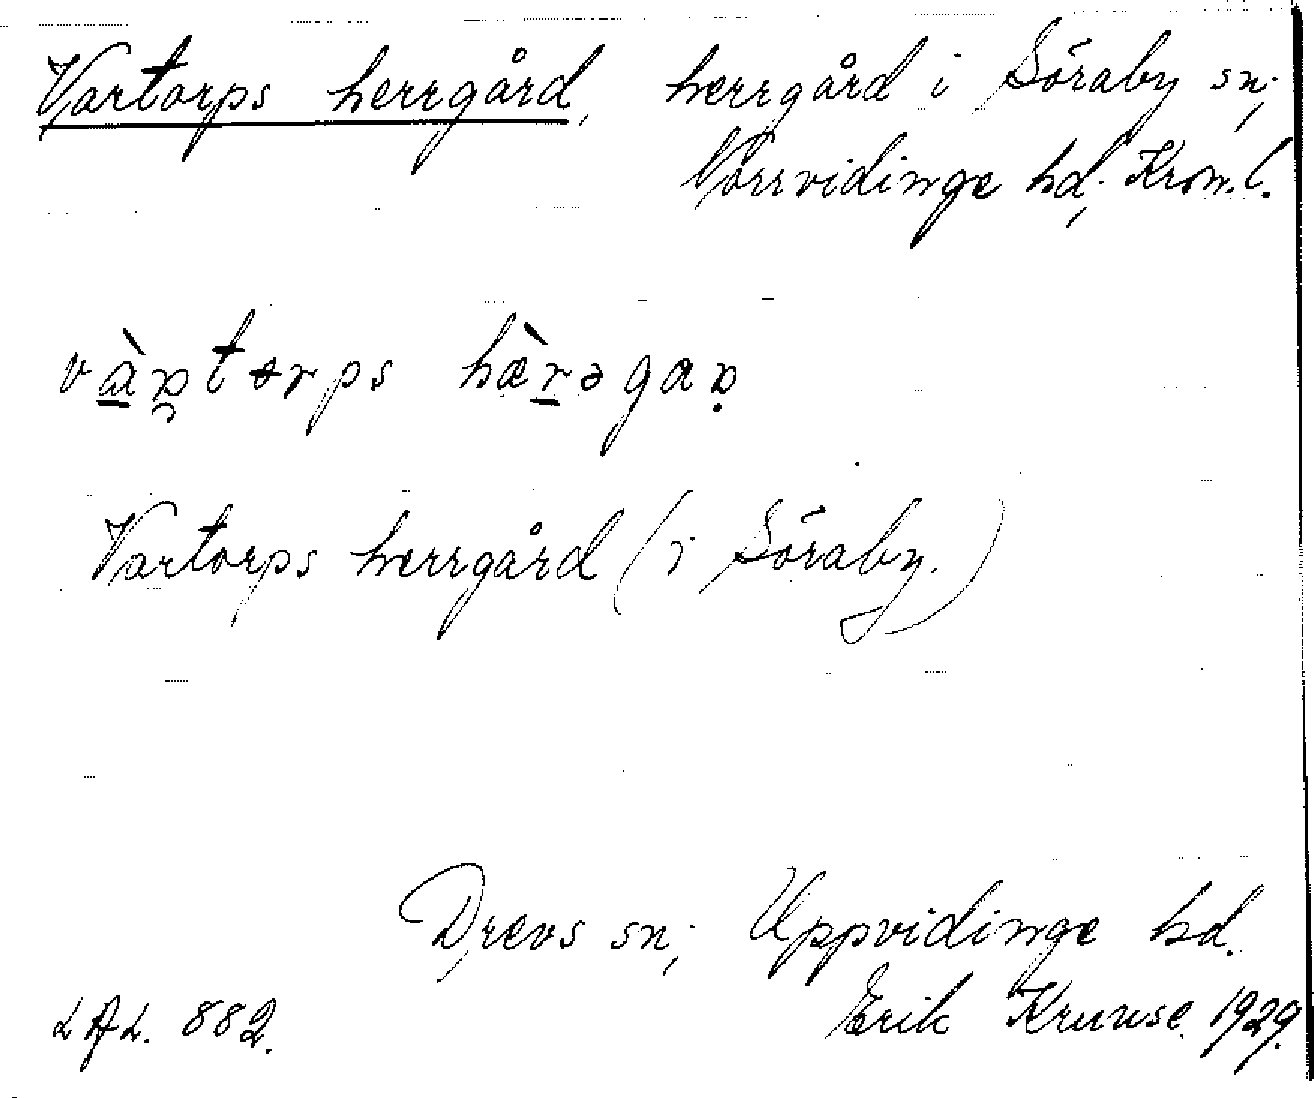 Vartorps herrgård, herrgård i Söraby sn;
Norrvidinge hd; Kron. l.
Vartorps herrgård (i Söraby.)
Drevs sn; Uppvidinge hd.
LAL. 882. Erik Kruuse. 1929.